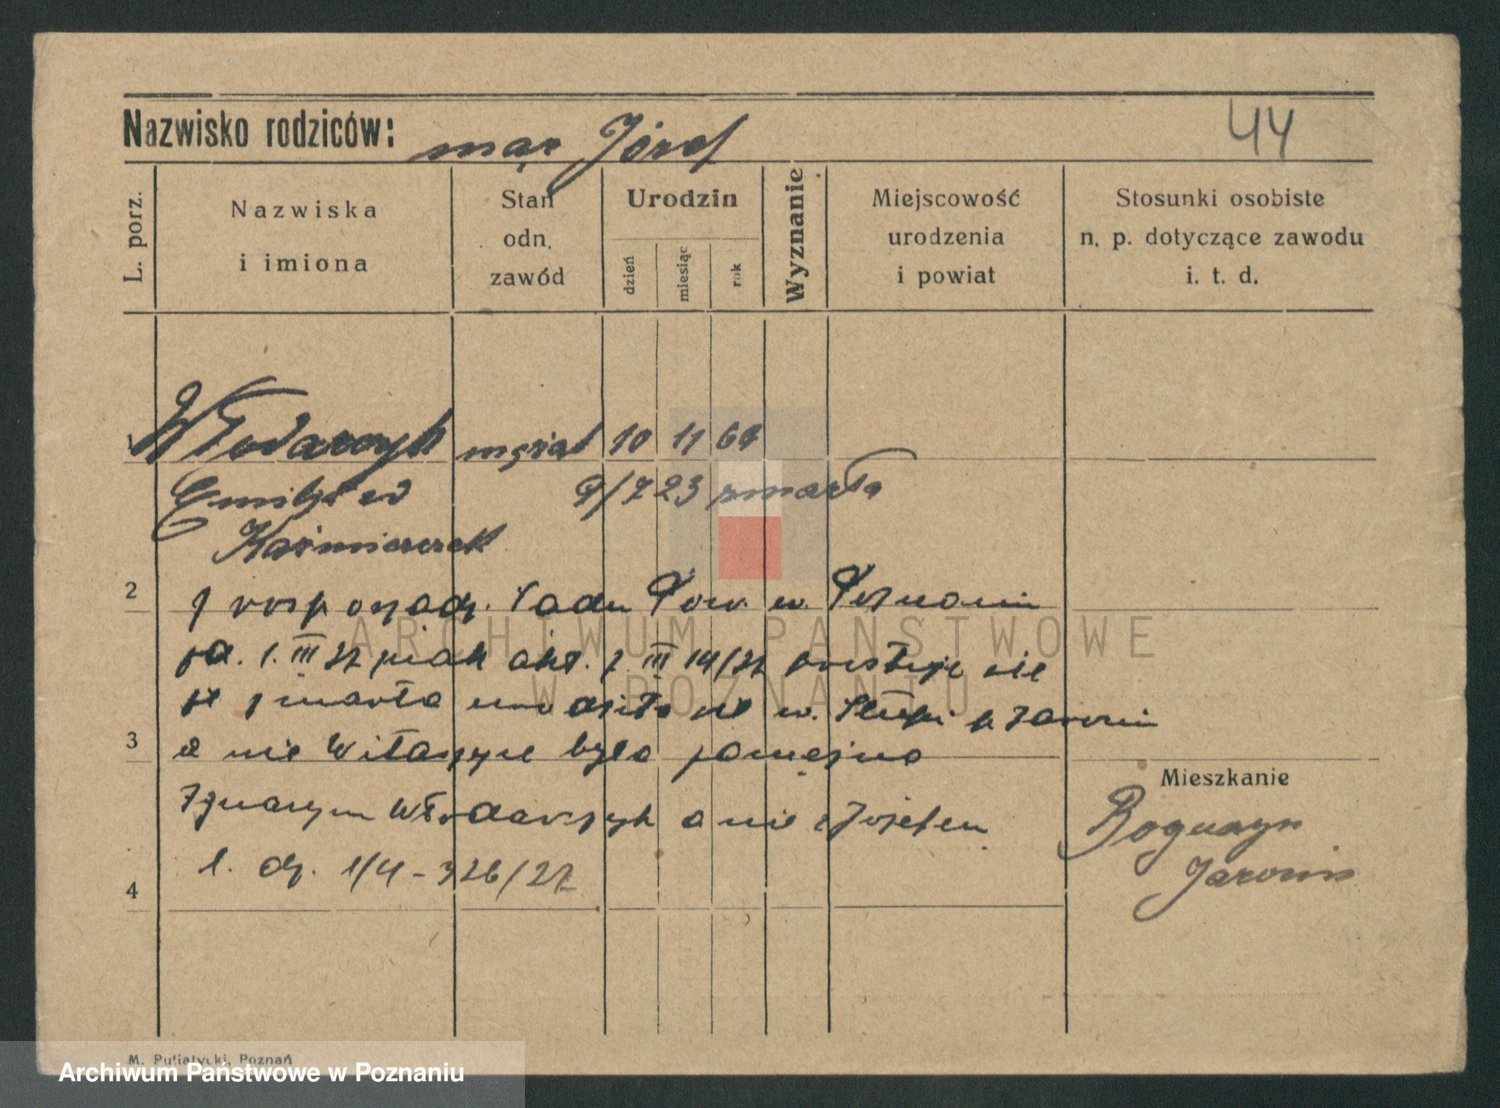 44
Nazwisko rodziców: mąż Józef
L. porz.
Nazwiska i imiona
Stan odn. zawód
Urodzin
dzień
miesiąc
rok
Wyznanie
Miejscowość urodzenia i powiat
Stosunki osobiste n. p. dotyczące zawodu i. t. d.
1 Włodarczyk mężat 10 11 64
9/7 23 zmarła
Kaźmierczak
2 z rozporządz. Sadu Pow. w. Poznaniu
III 27 akt. III 14/27 prostuje sie
że zmarła urodziła sie w. Słupi p Jarocin
3 a nie Witaszyce była zamężna
Ignacym Włodarczyk a nie Józefem
4 l. dz. 1/4 - 326/27
Mieszkanie
Boguszyn
Jarocin
M. Putiatycki, Poznań
ARCHIWUM PAŃSTWOWE
W POZNANIU
Archiwum Państwowe w Poznaniu